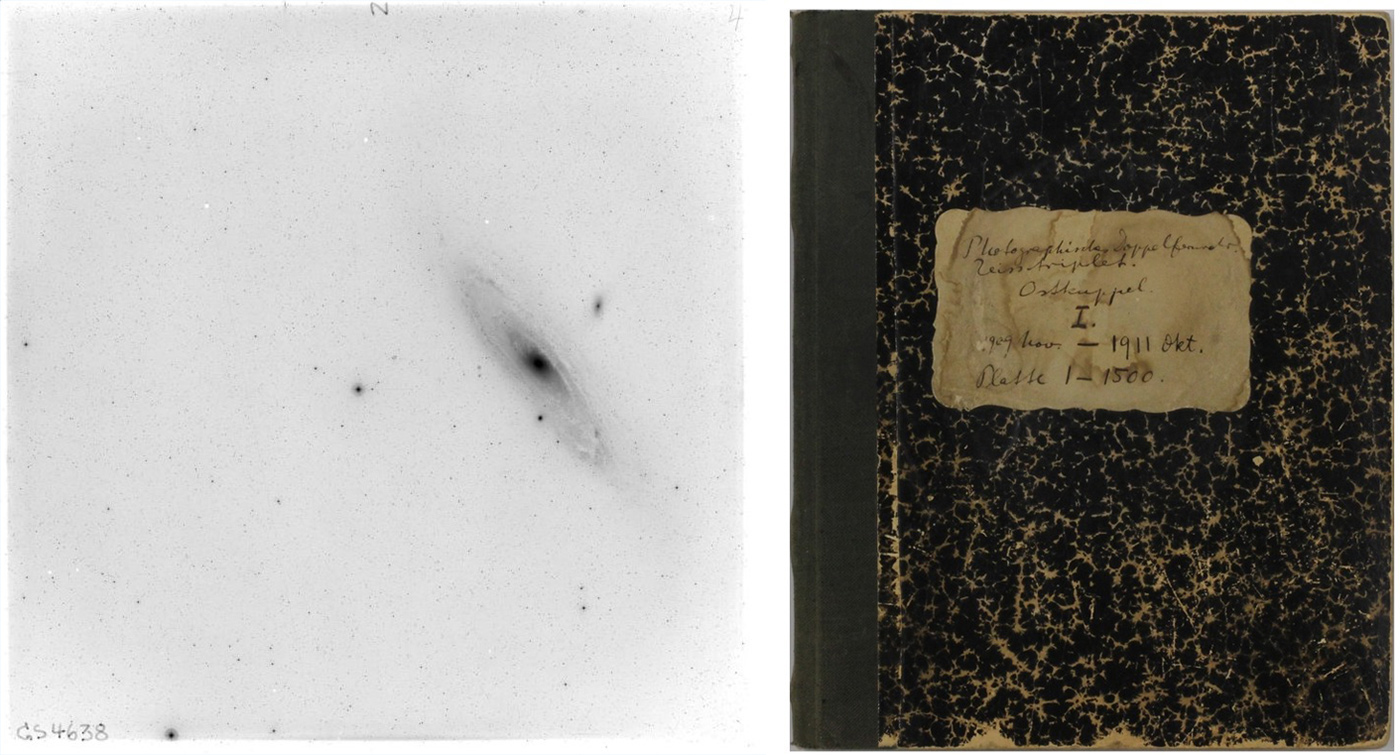 N
4
GS4638
Photographische Doppelfernrohr.
Zeisstriplet.
Ostkuppel.
I.
1909 Nov. — 1911 Okt.
Platte 1 — 1500.